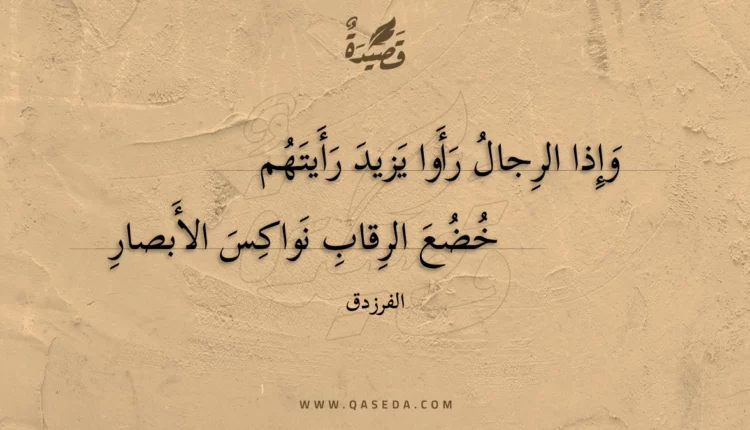 قَصِيْدَةٌ
وَإِذا الرِجالُ رَأَوا يَزيدَ رَأَيتَهُم
خُضُعَ الرِقابِ نَواكِسَ الأَبصارِ
الفرزدق
WWW.QASEDA.COM